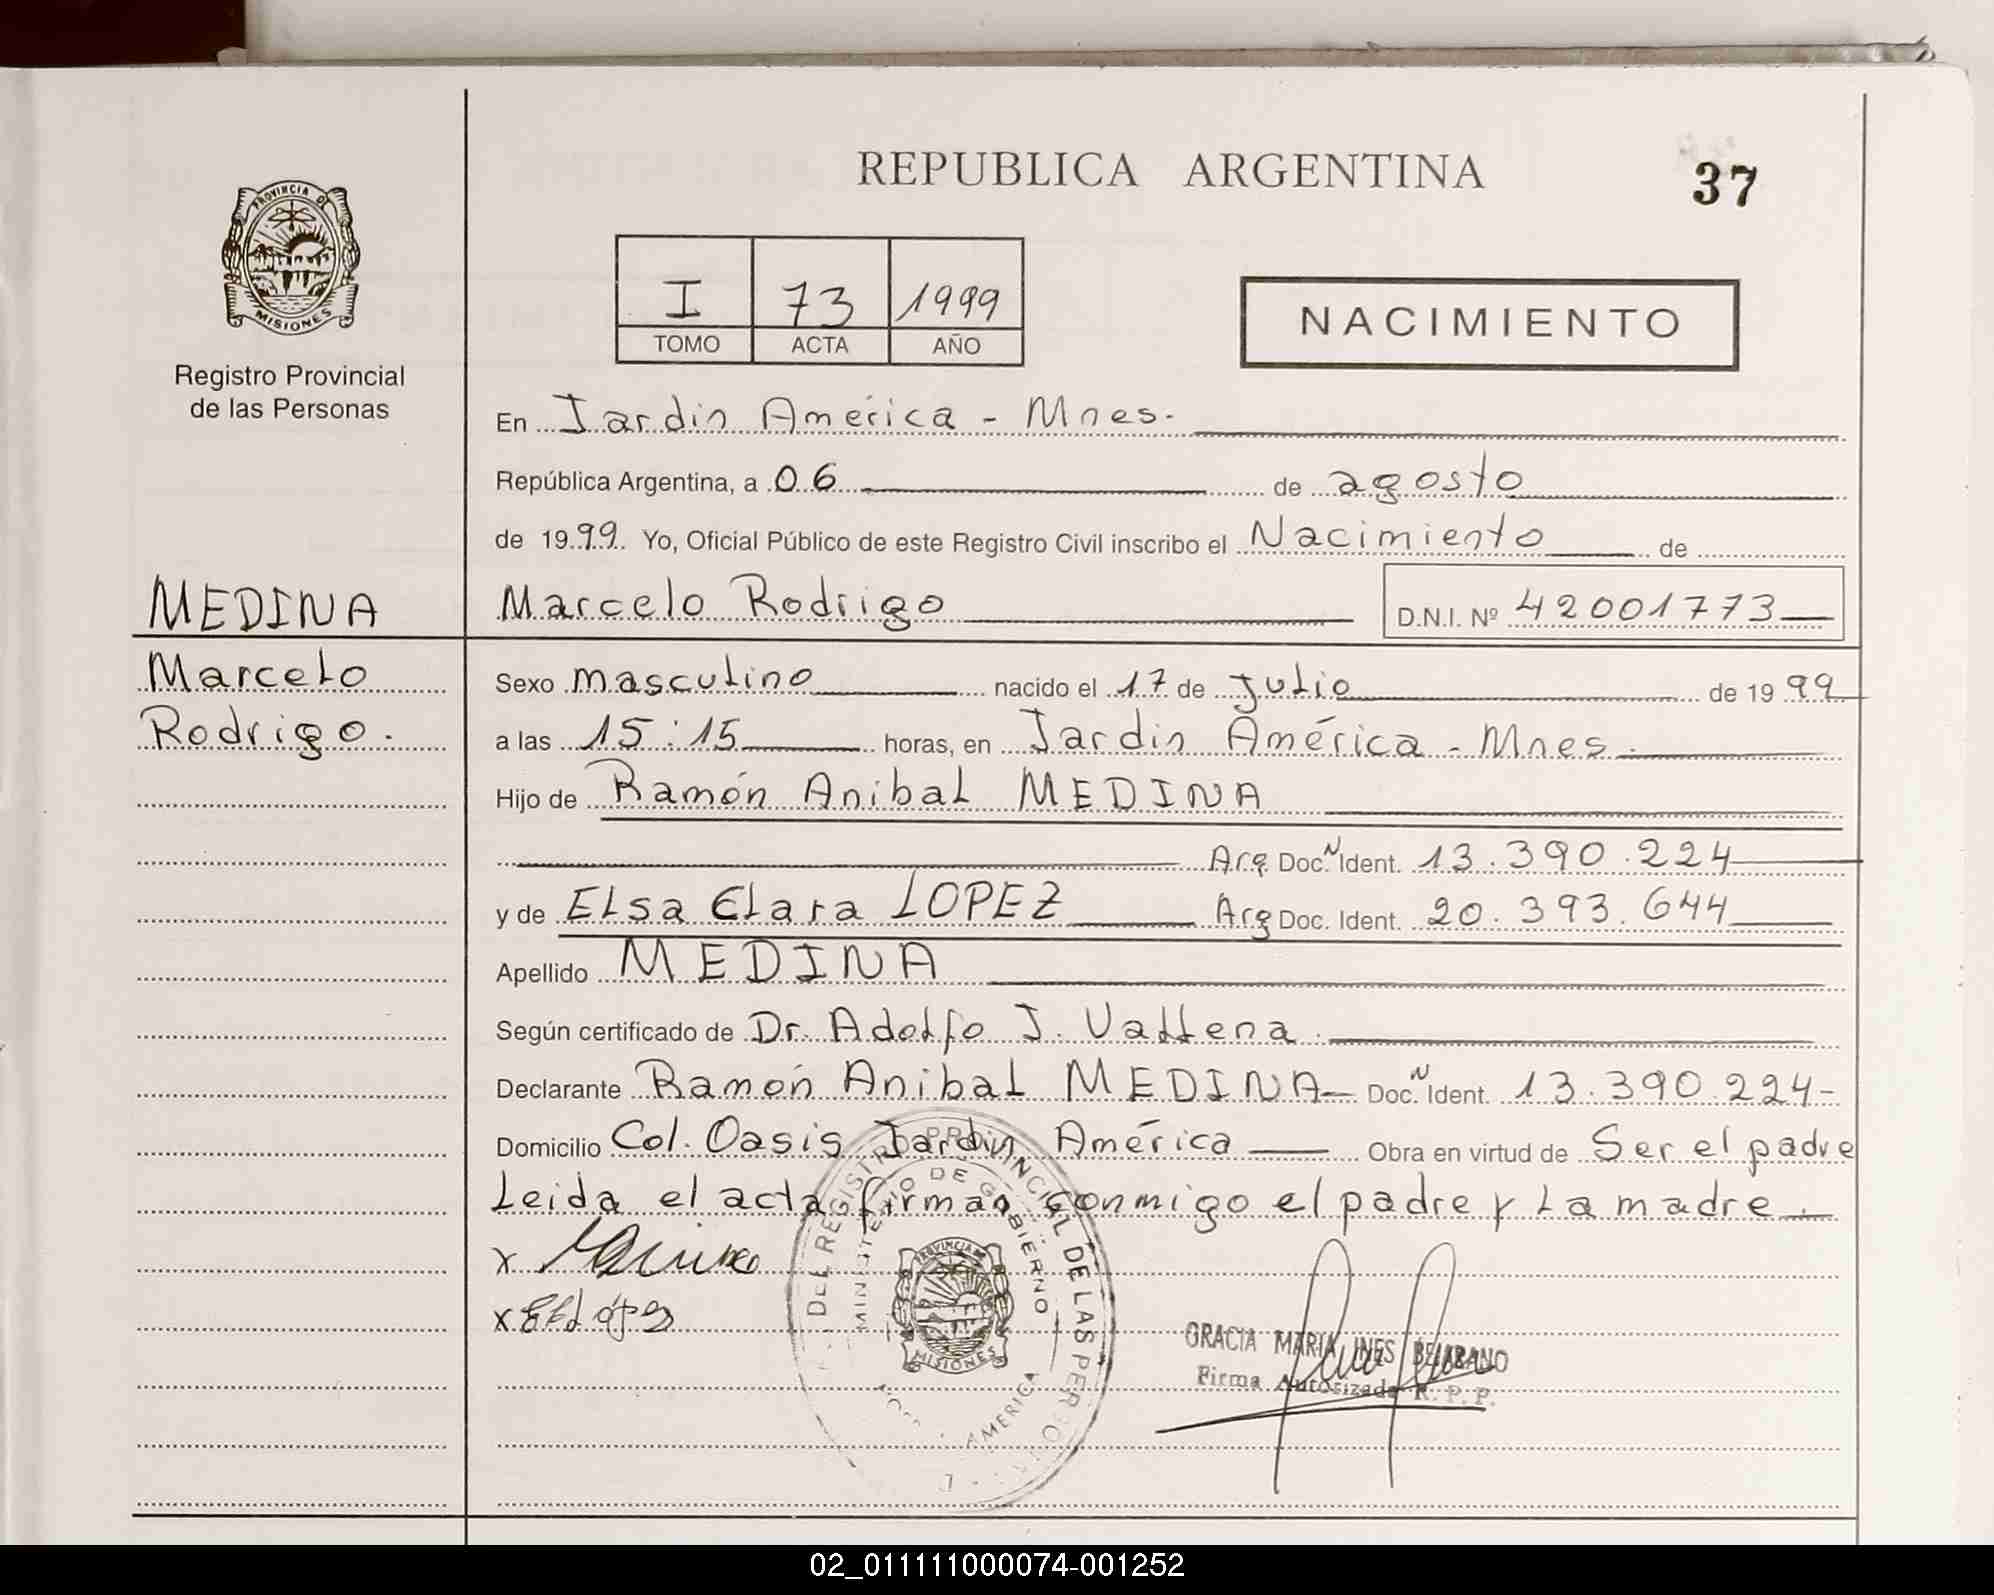 REPUBLICA ARGENTINA
37
PROVINCIA DE
MISIONES
Registro Provincial
de las Personas
I 73 1999
TOMO ACTA AÑO
NACIMIENTO
En Jardin América - Mnes.
República Argentina, a 06 de agosto
de 1999 Yo, Oficial Público de este Registro Civil inscribo el Nacimiento de
MEDINA
Marcelo Rodrigo D.N.I. Nº 42001773
Marcelo
Rodrigo.
Sexo masculino nacido el 17 de Julio de 1999
a las 15:15 horas, en Jardin América - Mnes.
Hijo de Ramón Anibal MEDINA
Arg. Doc. N Ident. 13.390.224
y de Elsa Clara LOPEZ Arg Doc. Ident. 20.393.644
Apellido MEDINA
Según certificado de Dr. Adolfo J. Vallena.
Declarante Ramón Anibal MEDINA - Doc. N Ident. 13.390.224-
Domicilio Col. Oasis Jardin América Obra en virtud de Ser el padre
Leida el acta firman conmigo el padre y La madre.
x
x
DEL REGISTRO PROVINCIAL DE LAS PERSONAS
MINISTERIO DE GOBIERNO
PROVINCIA DE
MISIONES
AMERICA
GRACIA MARIA INES BEJARANO
Firma Autorizada R. P. P.
02_011111000074-001252